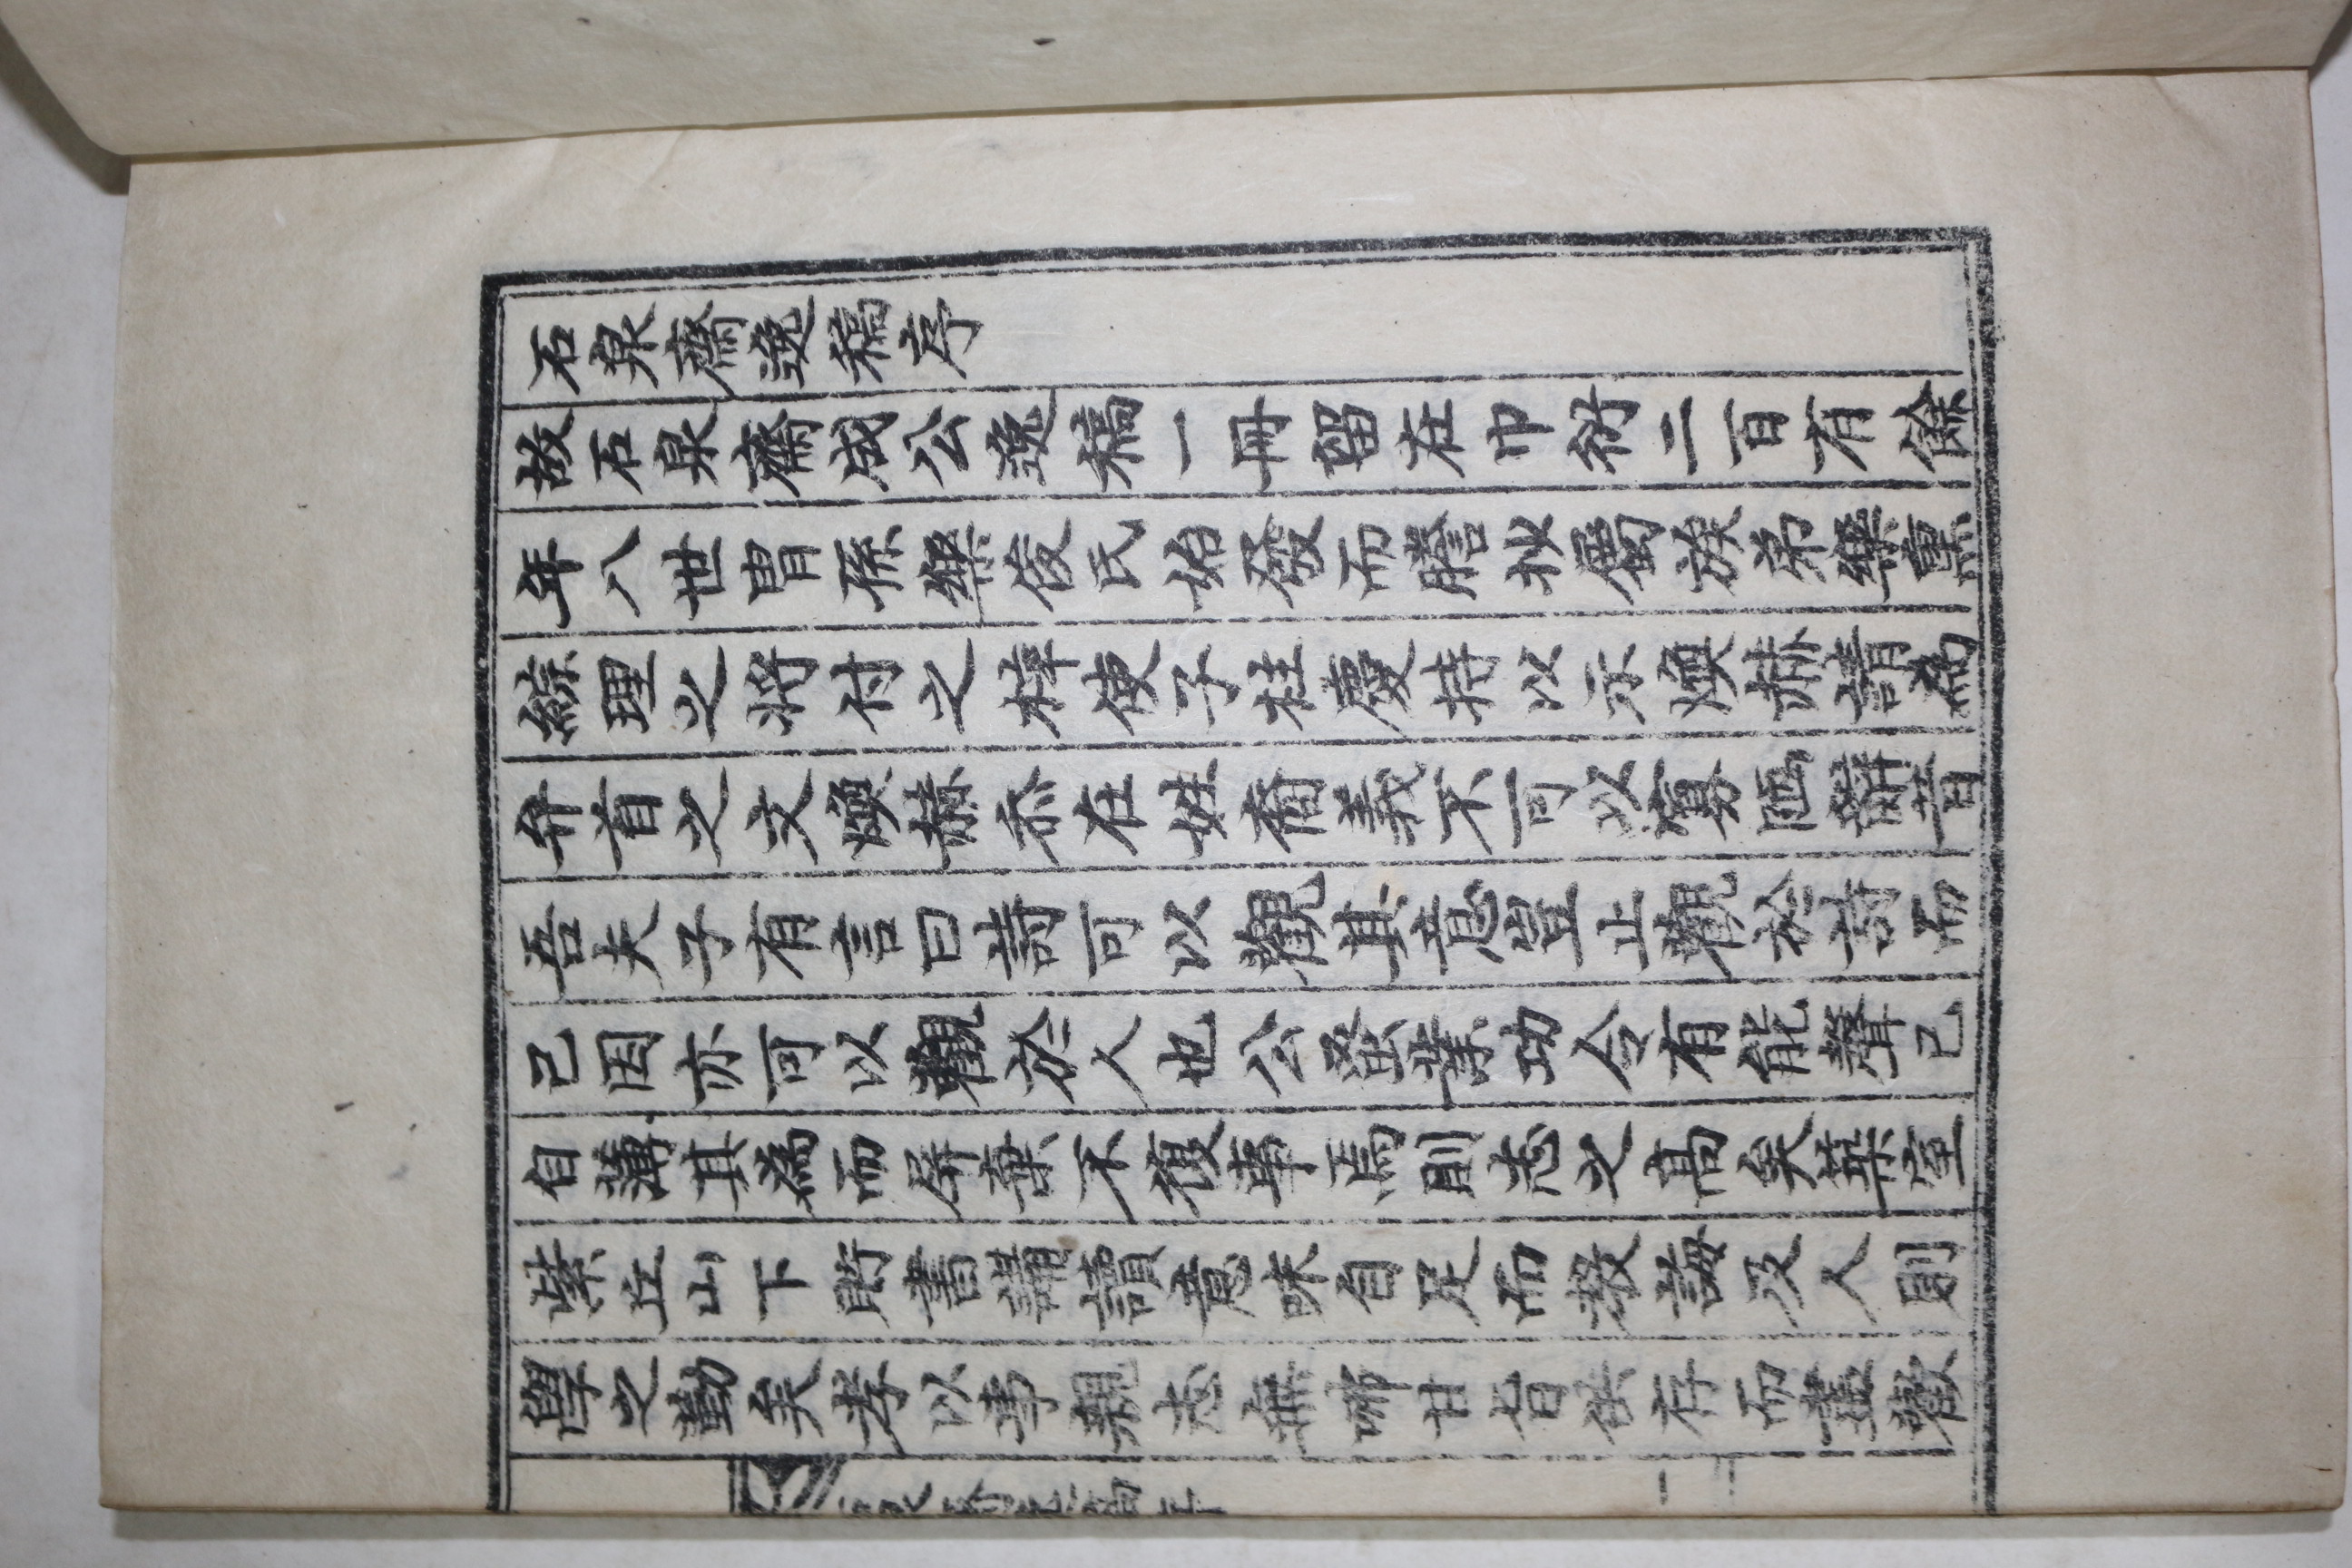 石泉齋逸稿序
故石泉齋成公逸稿一冊留在巾衍二百有餘
年八世胄孫樂俊氏始發而謄抄屬族弟樂熏
綜理之將付之梓使子柱慶持以示煥赫請為
弁首之文煥赫忝在姓裔義不可以寡陋辭昔
吾夫子有言曰詩可以觀其意豈止觀於詩而
已因亦可以觀於人也公蚤業功令有能聲已
自薄其為而屏棄不復事焉則志之高矣築室
紫丘山下貯書講讀意味自足而教誨及人則
學之勤矣孝以事親志無咈甘旨供存而盡歡